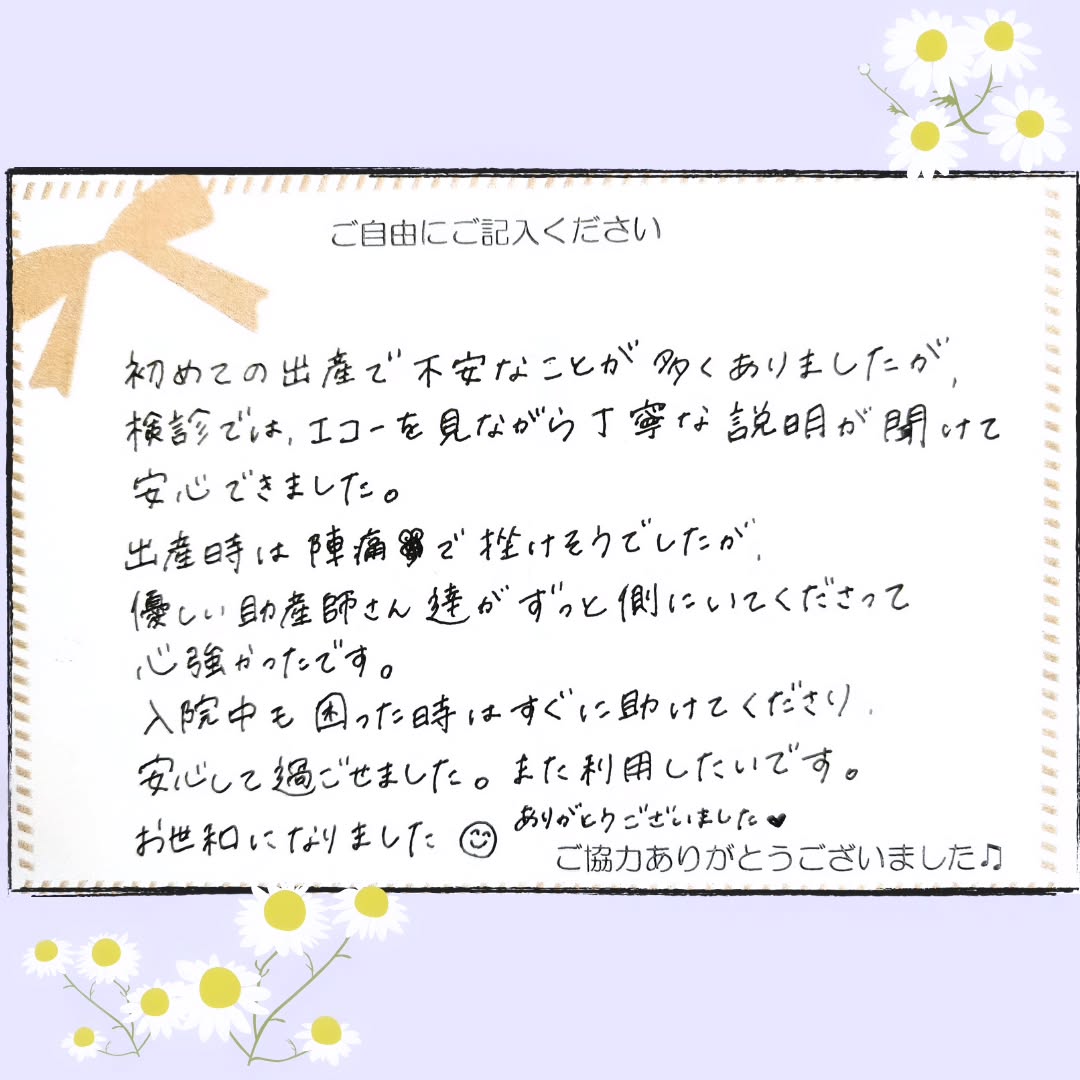 ご自由にご記入ください
初めての出産で不安なことが多くありましたが、
検診では、エコーを見ながら丁寧な説明が聞けて
安心できました。
出産時は陣痛で挫けそうでしたが、
優しい助産師さん達がずっと側にいてくださって
心強かったです。
入院中も困った時はすぐに助けてくださり、
安心して過ごせました。また利用したいです。
お世和になりました
ありがとうございました♥
ご協力ありがとうございました♫